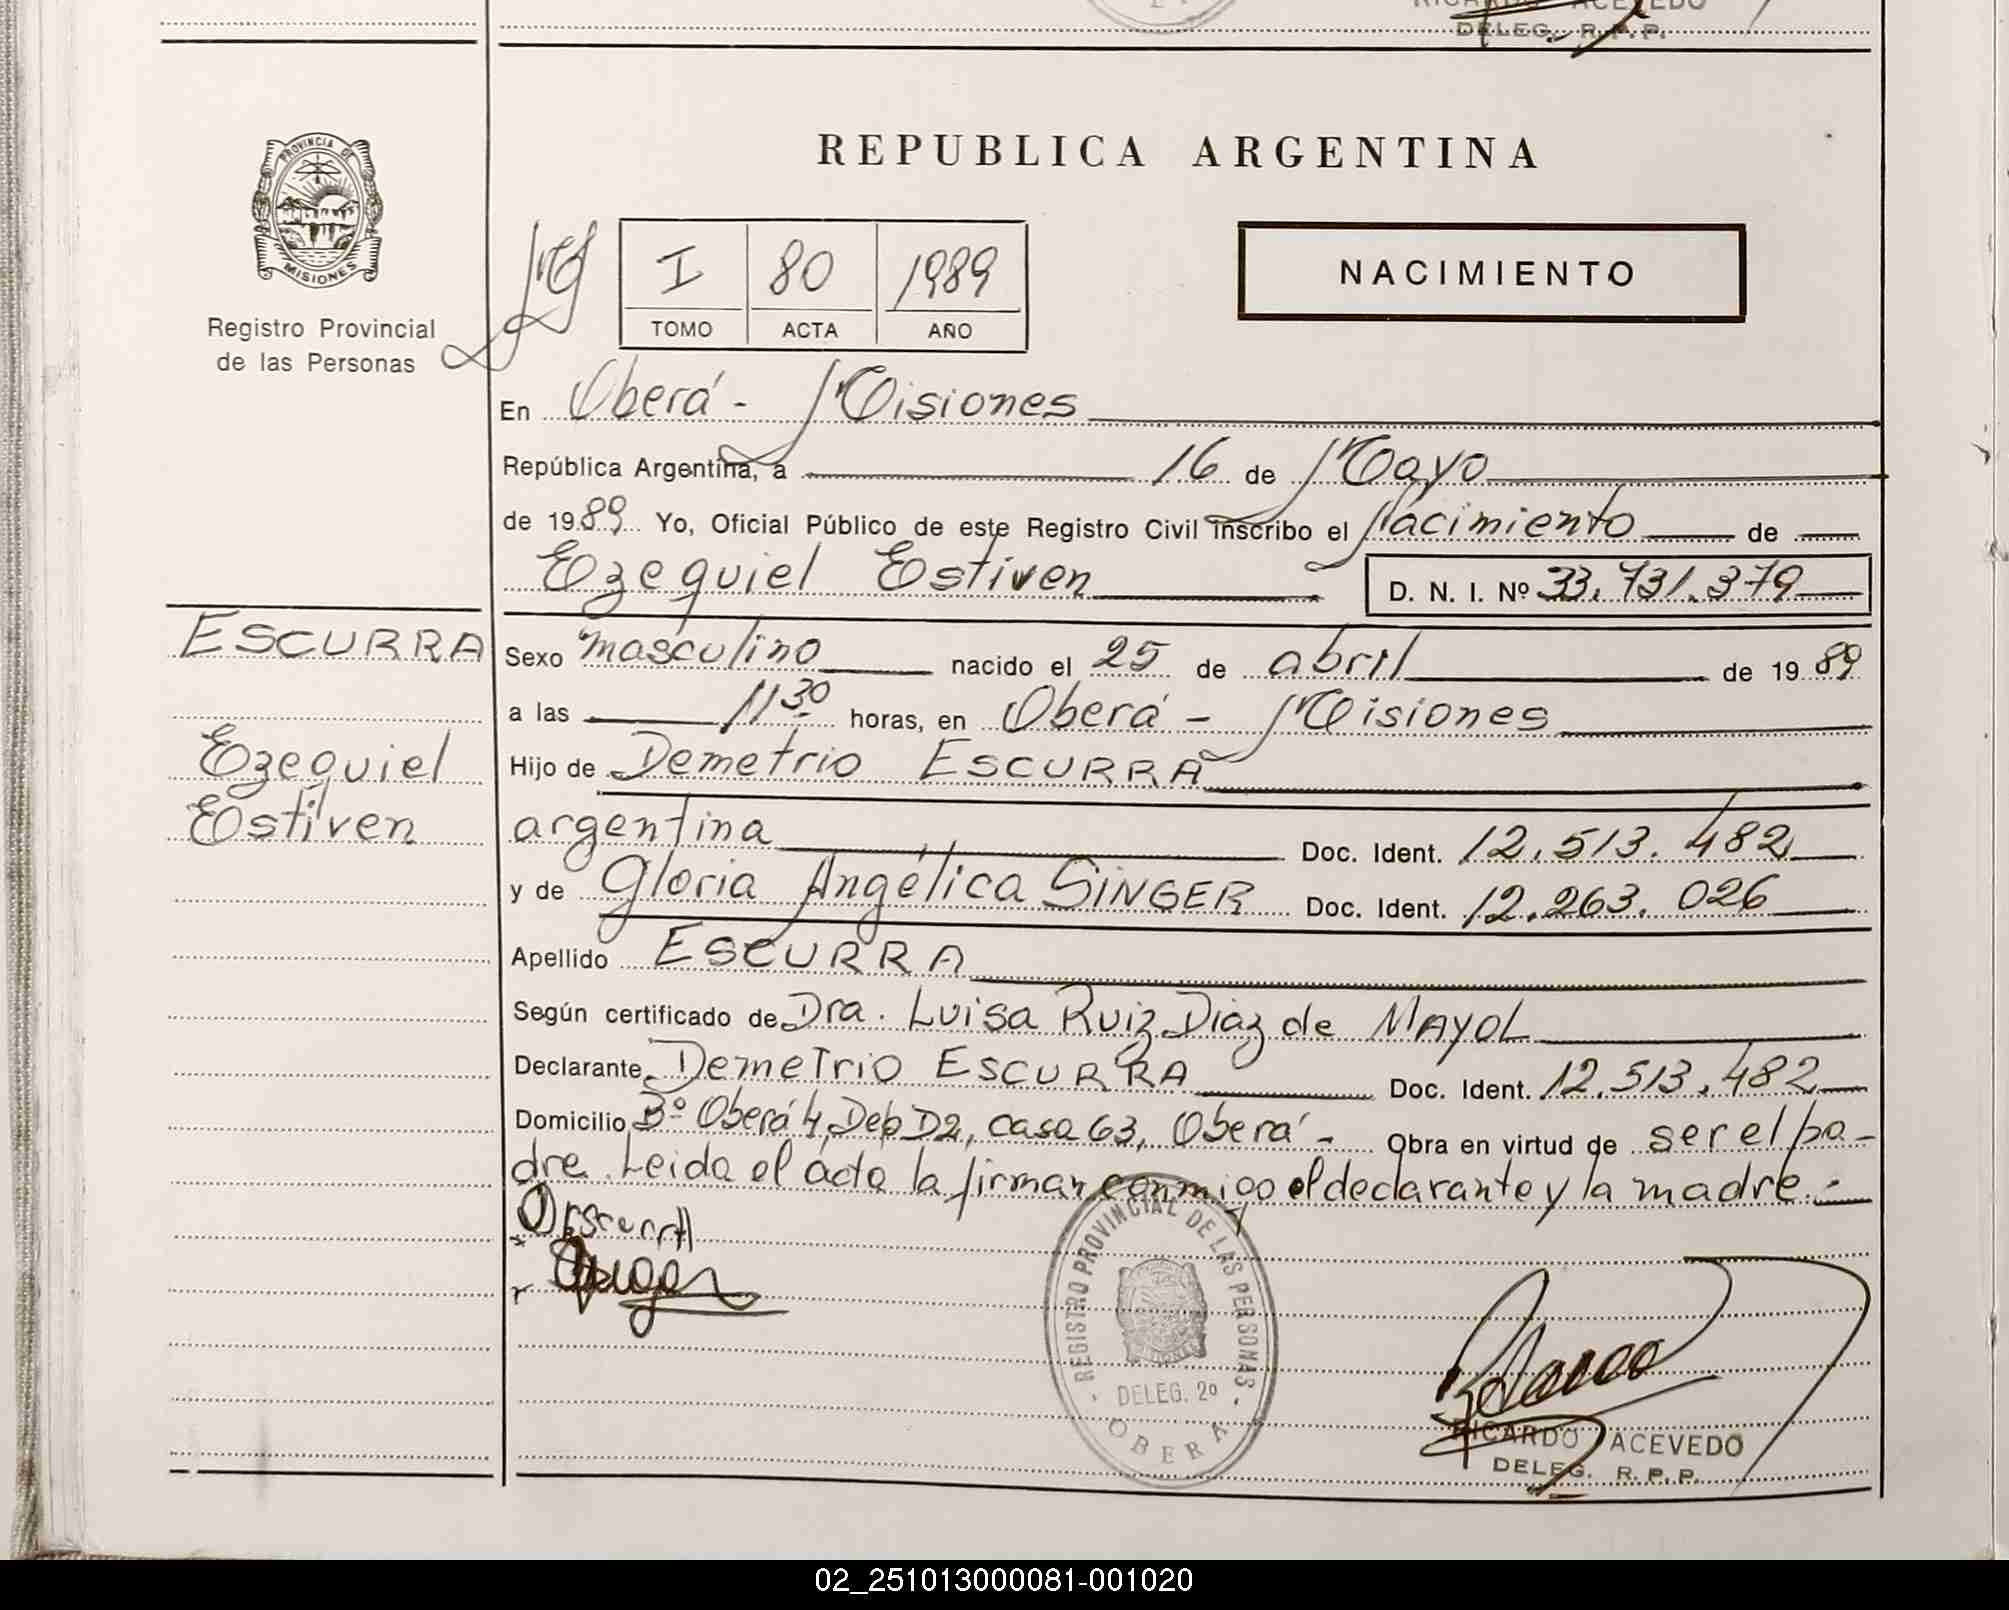 RICARDO ACEVEDO
DELEG. R.P.P.
PROVINCIA DE
MISIONES
Registro Provincial
de las Personas
REPUBLICA ARGENTINA
I 80 1989
TOMO ACTA AÑO
NACIMIENTO
En Oberá - Misiones
República Argentina, a 16 de Mayo
de 1989 Yo, Oficial Público de este Registro Civil inscribo el Nacimiento de
Ezequiel Estiven D. N. I. Nº 33.731.379
ESCURRA
Ezequiel
Estiven
Sexo masculino nacido el 25 de abril de 1989
a las 11 30 horas, en Oberá - Misiones
Hijo de Demetrio ESCURRA
argentina Doc. Ident. 12.513.482
y de Gloria Angélica SINGER Doc. Ident. 12.263.026
Apellido ESCURRA
Según certificado de Dra. Luisa Ruiz Diaz de MAYOL
Declarante Demetrio ESCURRA Doc. Ident. 12.513.482
Domicilio Bº Oberá 4, Deb D2, casa 63, Oberá - Obra en virtud de ser el pa-
dre. Leida el acta la firman conmigo el declarante y la madre.-
REGISTRO PROVINCIAL DE LAS PERSONAS
MISIONES
DELEG. 2º
OBERA
RICARDO ACEVEDO
DELEG. R.P.P.
02_251013000081-001020